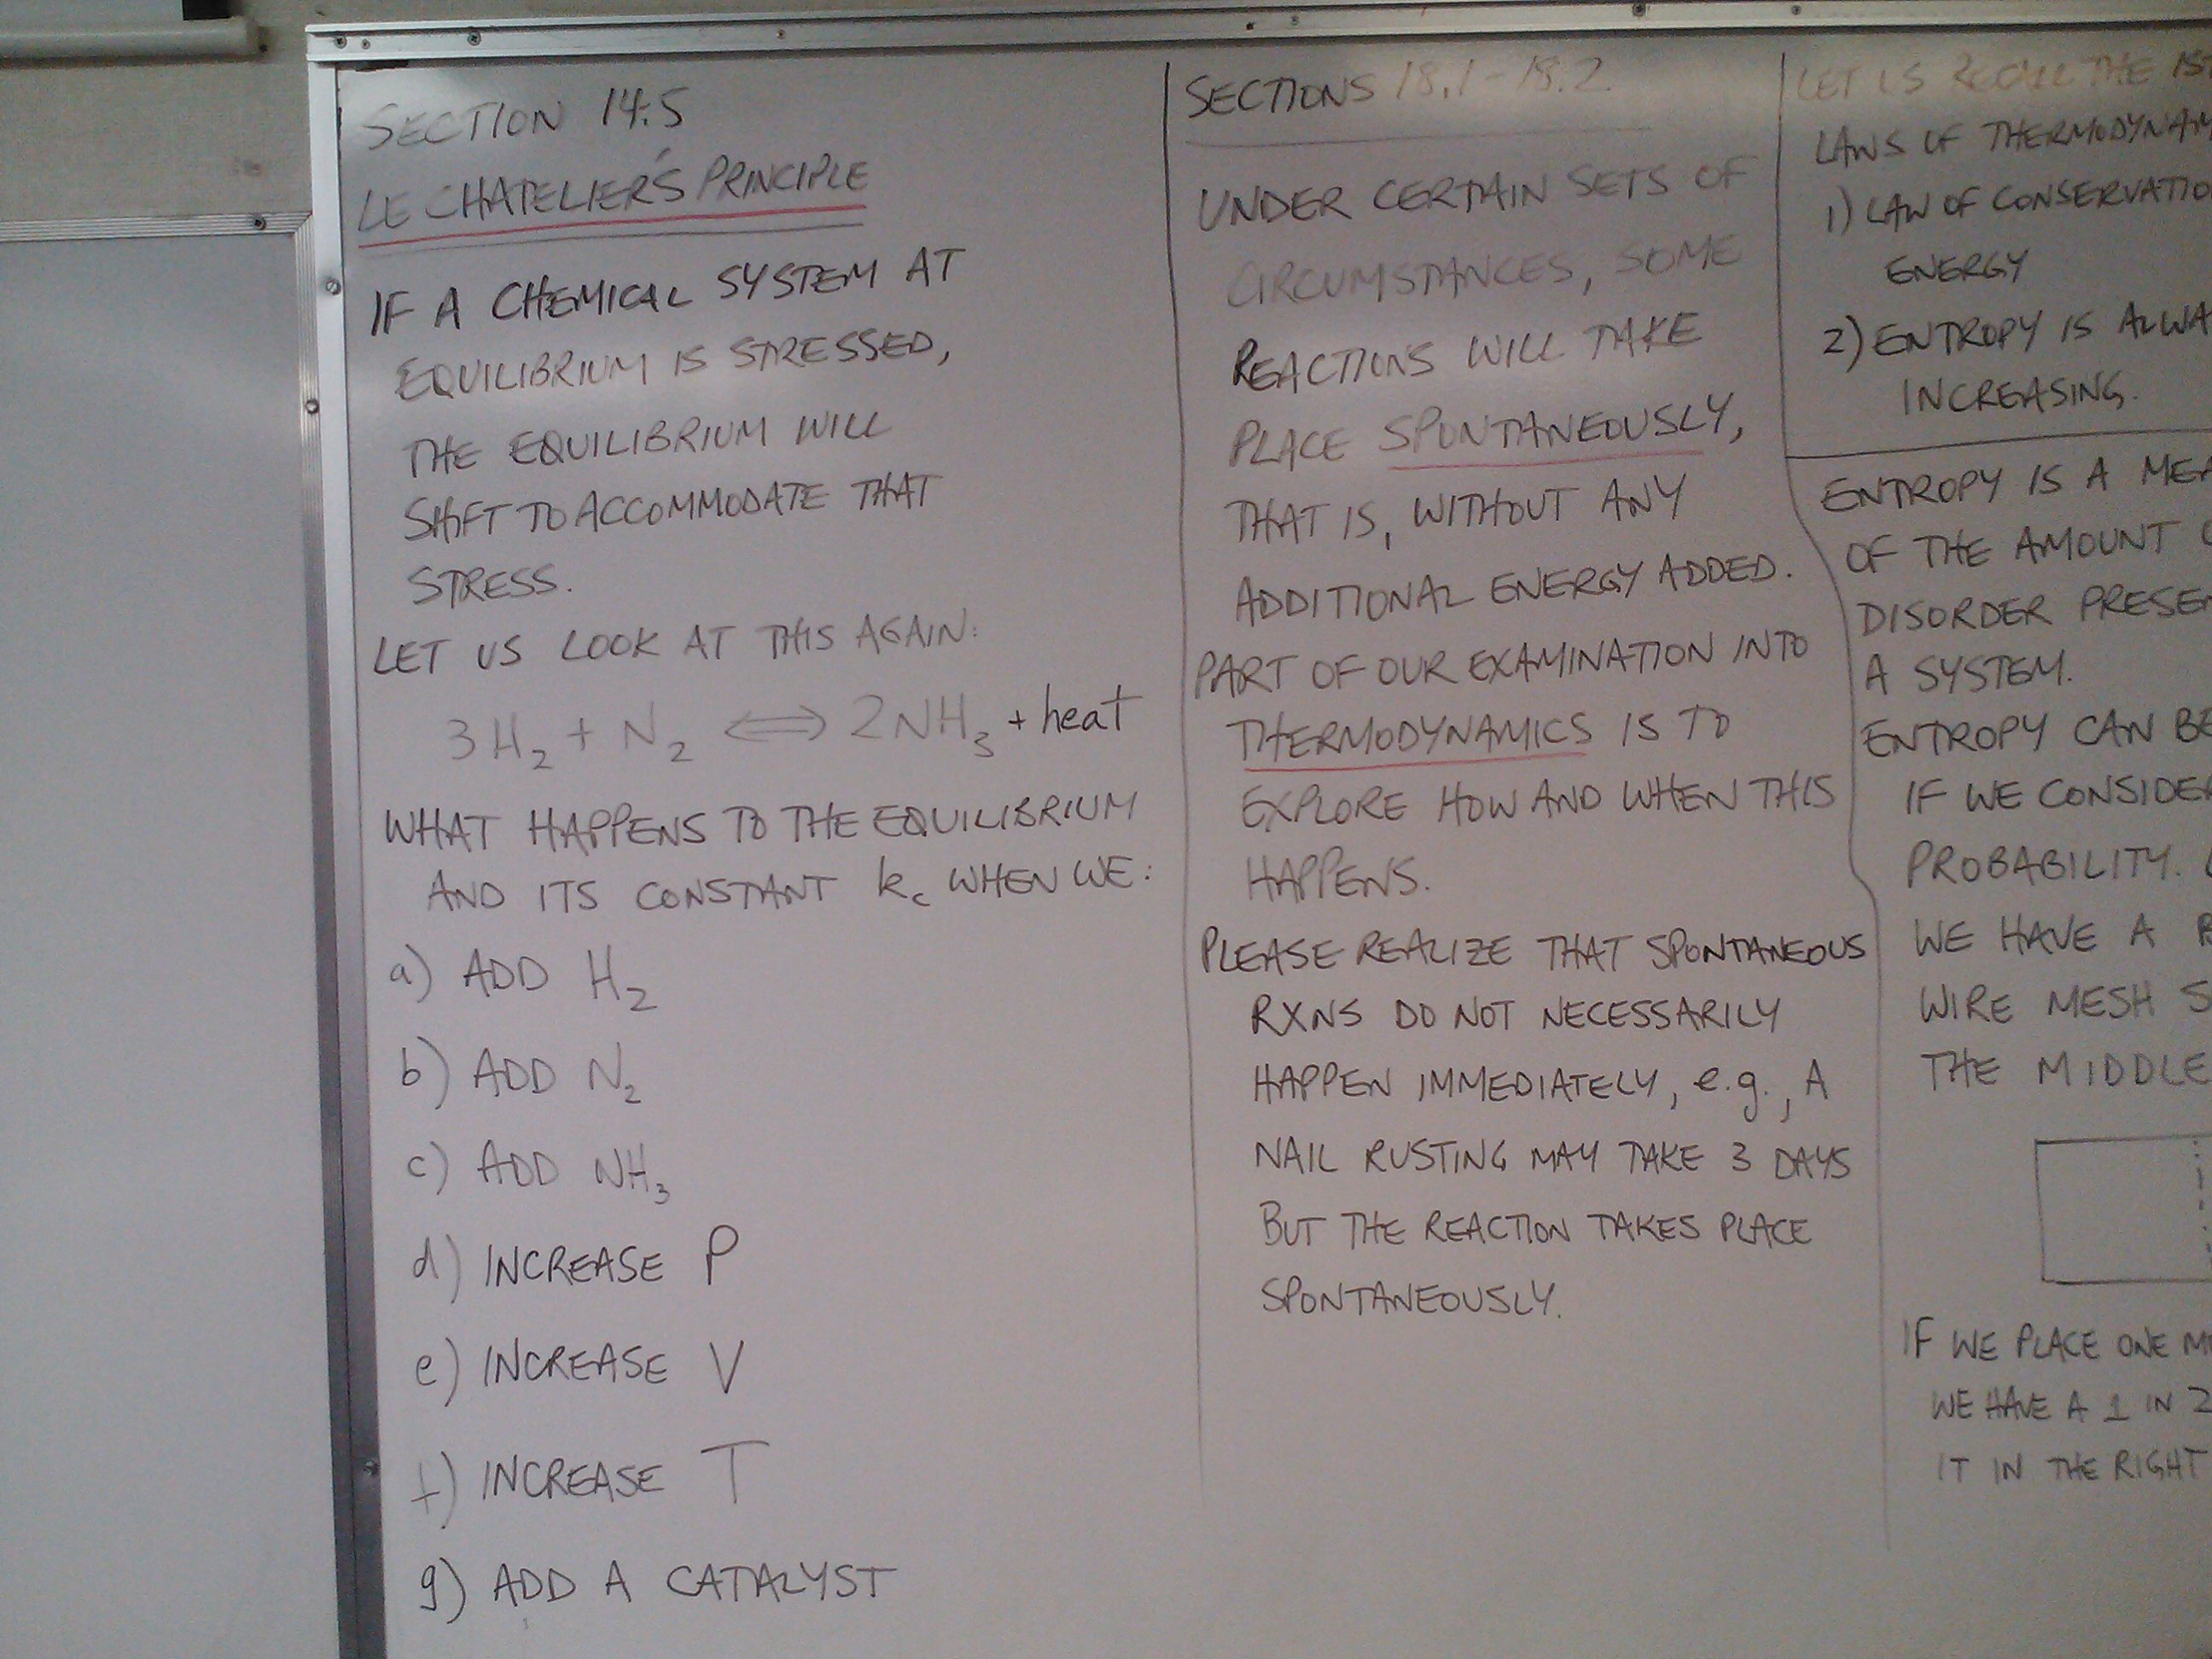 SECTION 14.5
LE CHATELIER'S PRINCIPLE
IF A CHEMICAL SYSTEM AT
EQUILIBRIUM IS STRESSED,
THE EQUILIBRIUM WILL
SHIFT TO ACCOMMODATE THAT
STRESS.
LET US LOOK AT THIS AGAIN:
3H₂ + N₂ ⟺ 2NH₃ + heat
WHAT HAPPENS TO THE EQUILIBRIUM
AND ITS CONSTANT k꜀ WHEN WE:
a) ADD H₂
b) ADD N₂
c) ADD NH₃
d) INCREASE P
e) INCREASE V
f) INCREASE T
g) ADD A CATALYST
SECTIONS 18.1-18.2
UNDER CERTAIN SETS OF
CIRCUMSTANCES, SOME
REACTIONS WILL TAKE
PLACE SPONTANEOUSLY,
THAT IS, WITHOUT ANY
ADDITIONAL ENERGY ADDED.
PART OF OUR EXAMINATION INTO
THERMODYNAMICS IS TO
EXPLORE HOW AND WHEN THIS
HAPPENS.
PLEASE REALIZE THAT SPONTANEOUS
RXNS DO NOT NECESSARILY
HAPPEN IMMEDIATELY, e.g., A
NAIL RUSTING MAY TAKE 3 DAYS
BUT THE REACTION TAKES PLACE
SPONTANEOUSLY.
LET US RECALL THE 1ST
LAWS OF THERMODYNAM
1) LAW OF CONSERVATIO
ENERGY
2) ENTROPY IS ALWA
INCREASING.
ENTROPY IS A MEA
OF THE AMOUNT
DISORDER PRESEN
A SYSTEM.
ENTROPY CAN BE
IF WE CONSIDER
PROBABILITY.
WE HAVE A
WIRE MESH S
THE MIDDLE
IF WE PLACE ONE M
WE HAVE A 1 IN 2
IT IN THE RIGHT